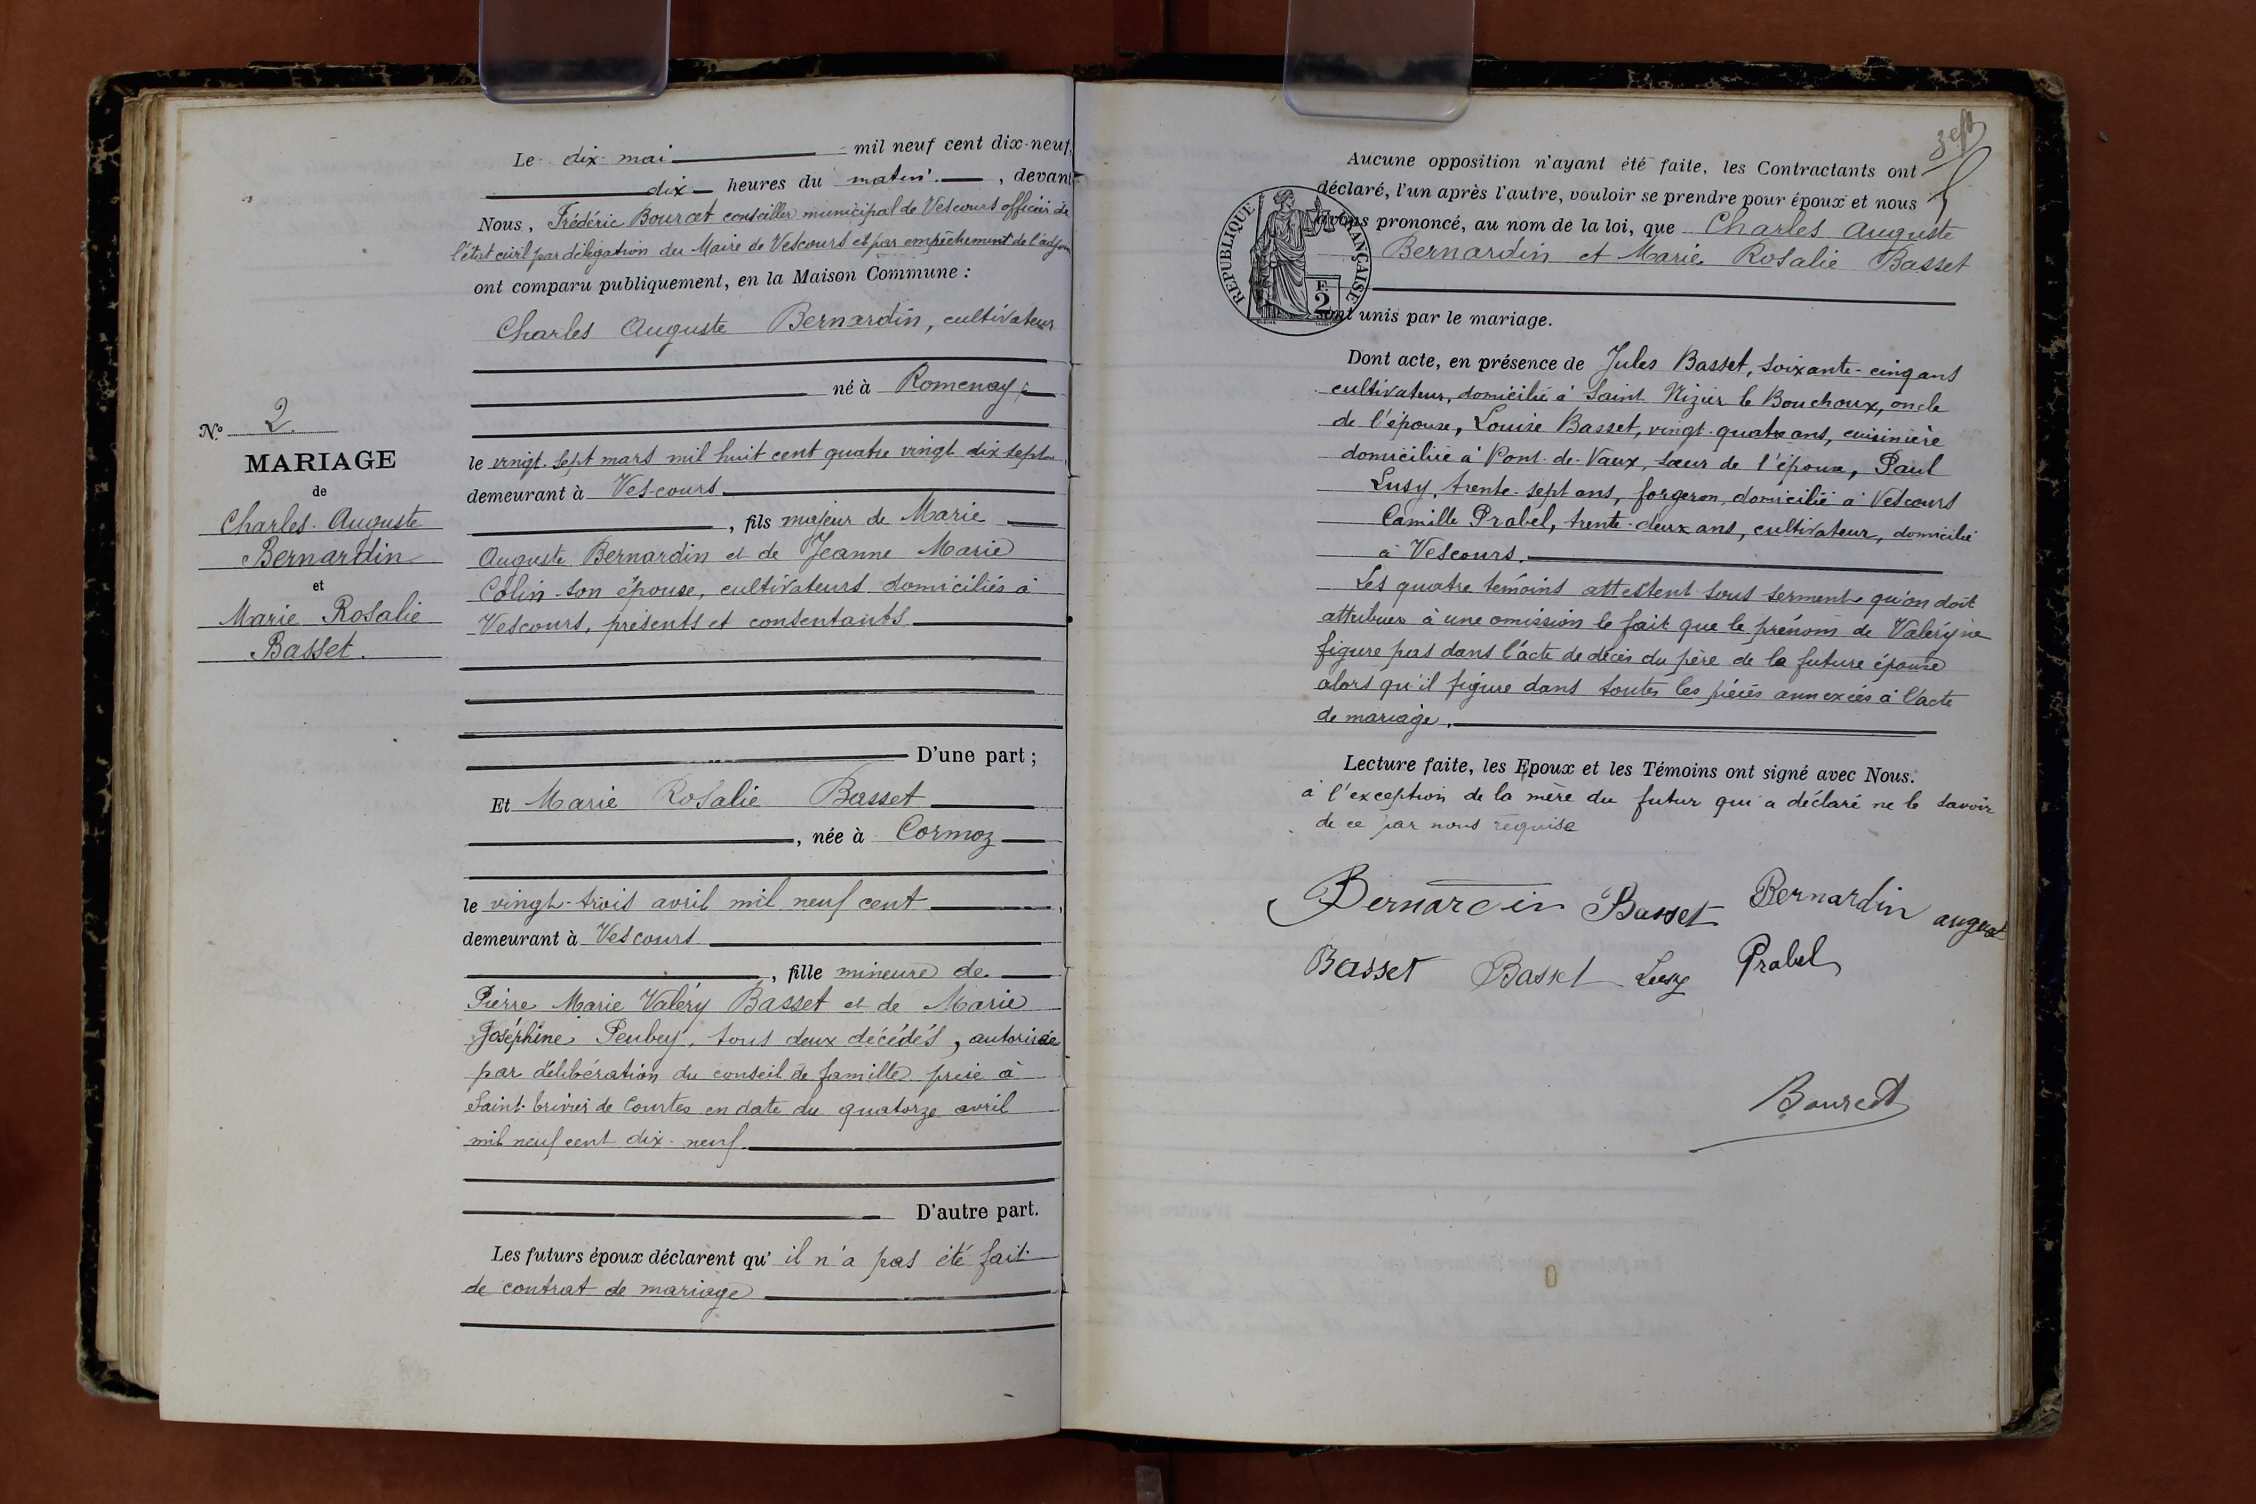 Le dix mai mil neuf cent dix-neuf,
dix heures du matin, devant
Nous, Frédéric Bourcet conseiller municipal de Vescours officier de
l'état civil par délégation du Maire de Vescours et par empêchement de l'adjoint
ont comparu publiquement, en la Maison Commune :
Charles Auguste Bernardin, cultivateur
né à Romenay,
le vingt-sept mars mil huit cent quatre vingt dix sept
demeurant à Vescours
, fils majeur de Marie
Auguste Bernardin et de Jeanne Marie
Colin son épouse, cultivateurs domiciliés à
Vescours, présents et consentants
D'une part ;
Et Marie Rosalie Basset
, née à Cormoz
le vingt-trois avril mil neuf cent
demeurant à Vescours
, fille mineure de
Pierre Marie Valéry Basset et de Marie
Joséphine Peubey, tous deux décédés, autorisée
par délibération du conseil de famille prise à
Saint-Trivier de Courtes en date du quatorze avril
mil neuf cent dix-neuf
D'autre part.
Les futurs époux déclarent qu'il n'a pas été fait
de contrat de mariage
N° 2
MARIAGE
de
Charles-Auguste
Bernardin
et
Marie Rosalie
Basset.
Aucune opposition n'ayant été faite, les Contractants ont
déclaré, l'un après l'autre, vouloir se prendre pour époux et nous
avons prononcé, au nom de la loi, que Charles Auguste
Bernardin et Marie Rosalie Basset
sont unis par le mariage.
RÉPUBLIQUE FRANÇAISE
F.
2
Dont acte, en présence de Jules Basset, soixante-cinq ans
cultivateur, domicilié à Saint Nizier le Bouchoux, oncle
de l'épouse, Louise Basset, vingt-quatre ans, cuisinière
domiciliée à Pont-de-Vaux, sœur de l'épouse, Paul
Lusy, trente-sept ans, forgeron, domicilié à Vescours
Camille Prabel, trente-deux ans, cultivateur, domicilié
à Vescours.
Les quatre témoins attestent sous serment qu'on doit
attribuer à une omission le fait que le prénom de Valéry ne
figure pas dans l'acte de décès du père de la future épouse
alors qu'il figure dans toutes les pièces annexées à l'acte
de mariage.
Lecture faite, les Epoux et les Témoins ont signé avec Nous.
à l'exception de la mère du futur qui a déclaré ne le savoir
de ce par nous requise
Bernardin Basset Bernardin august
Basset Basset Lusy Prabel
Bourcet